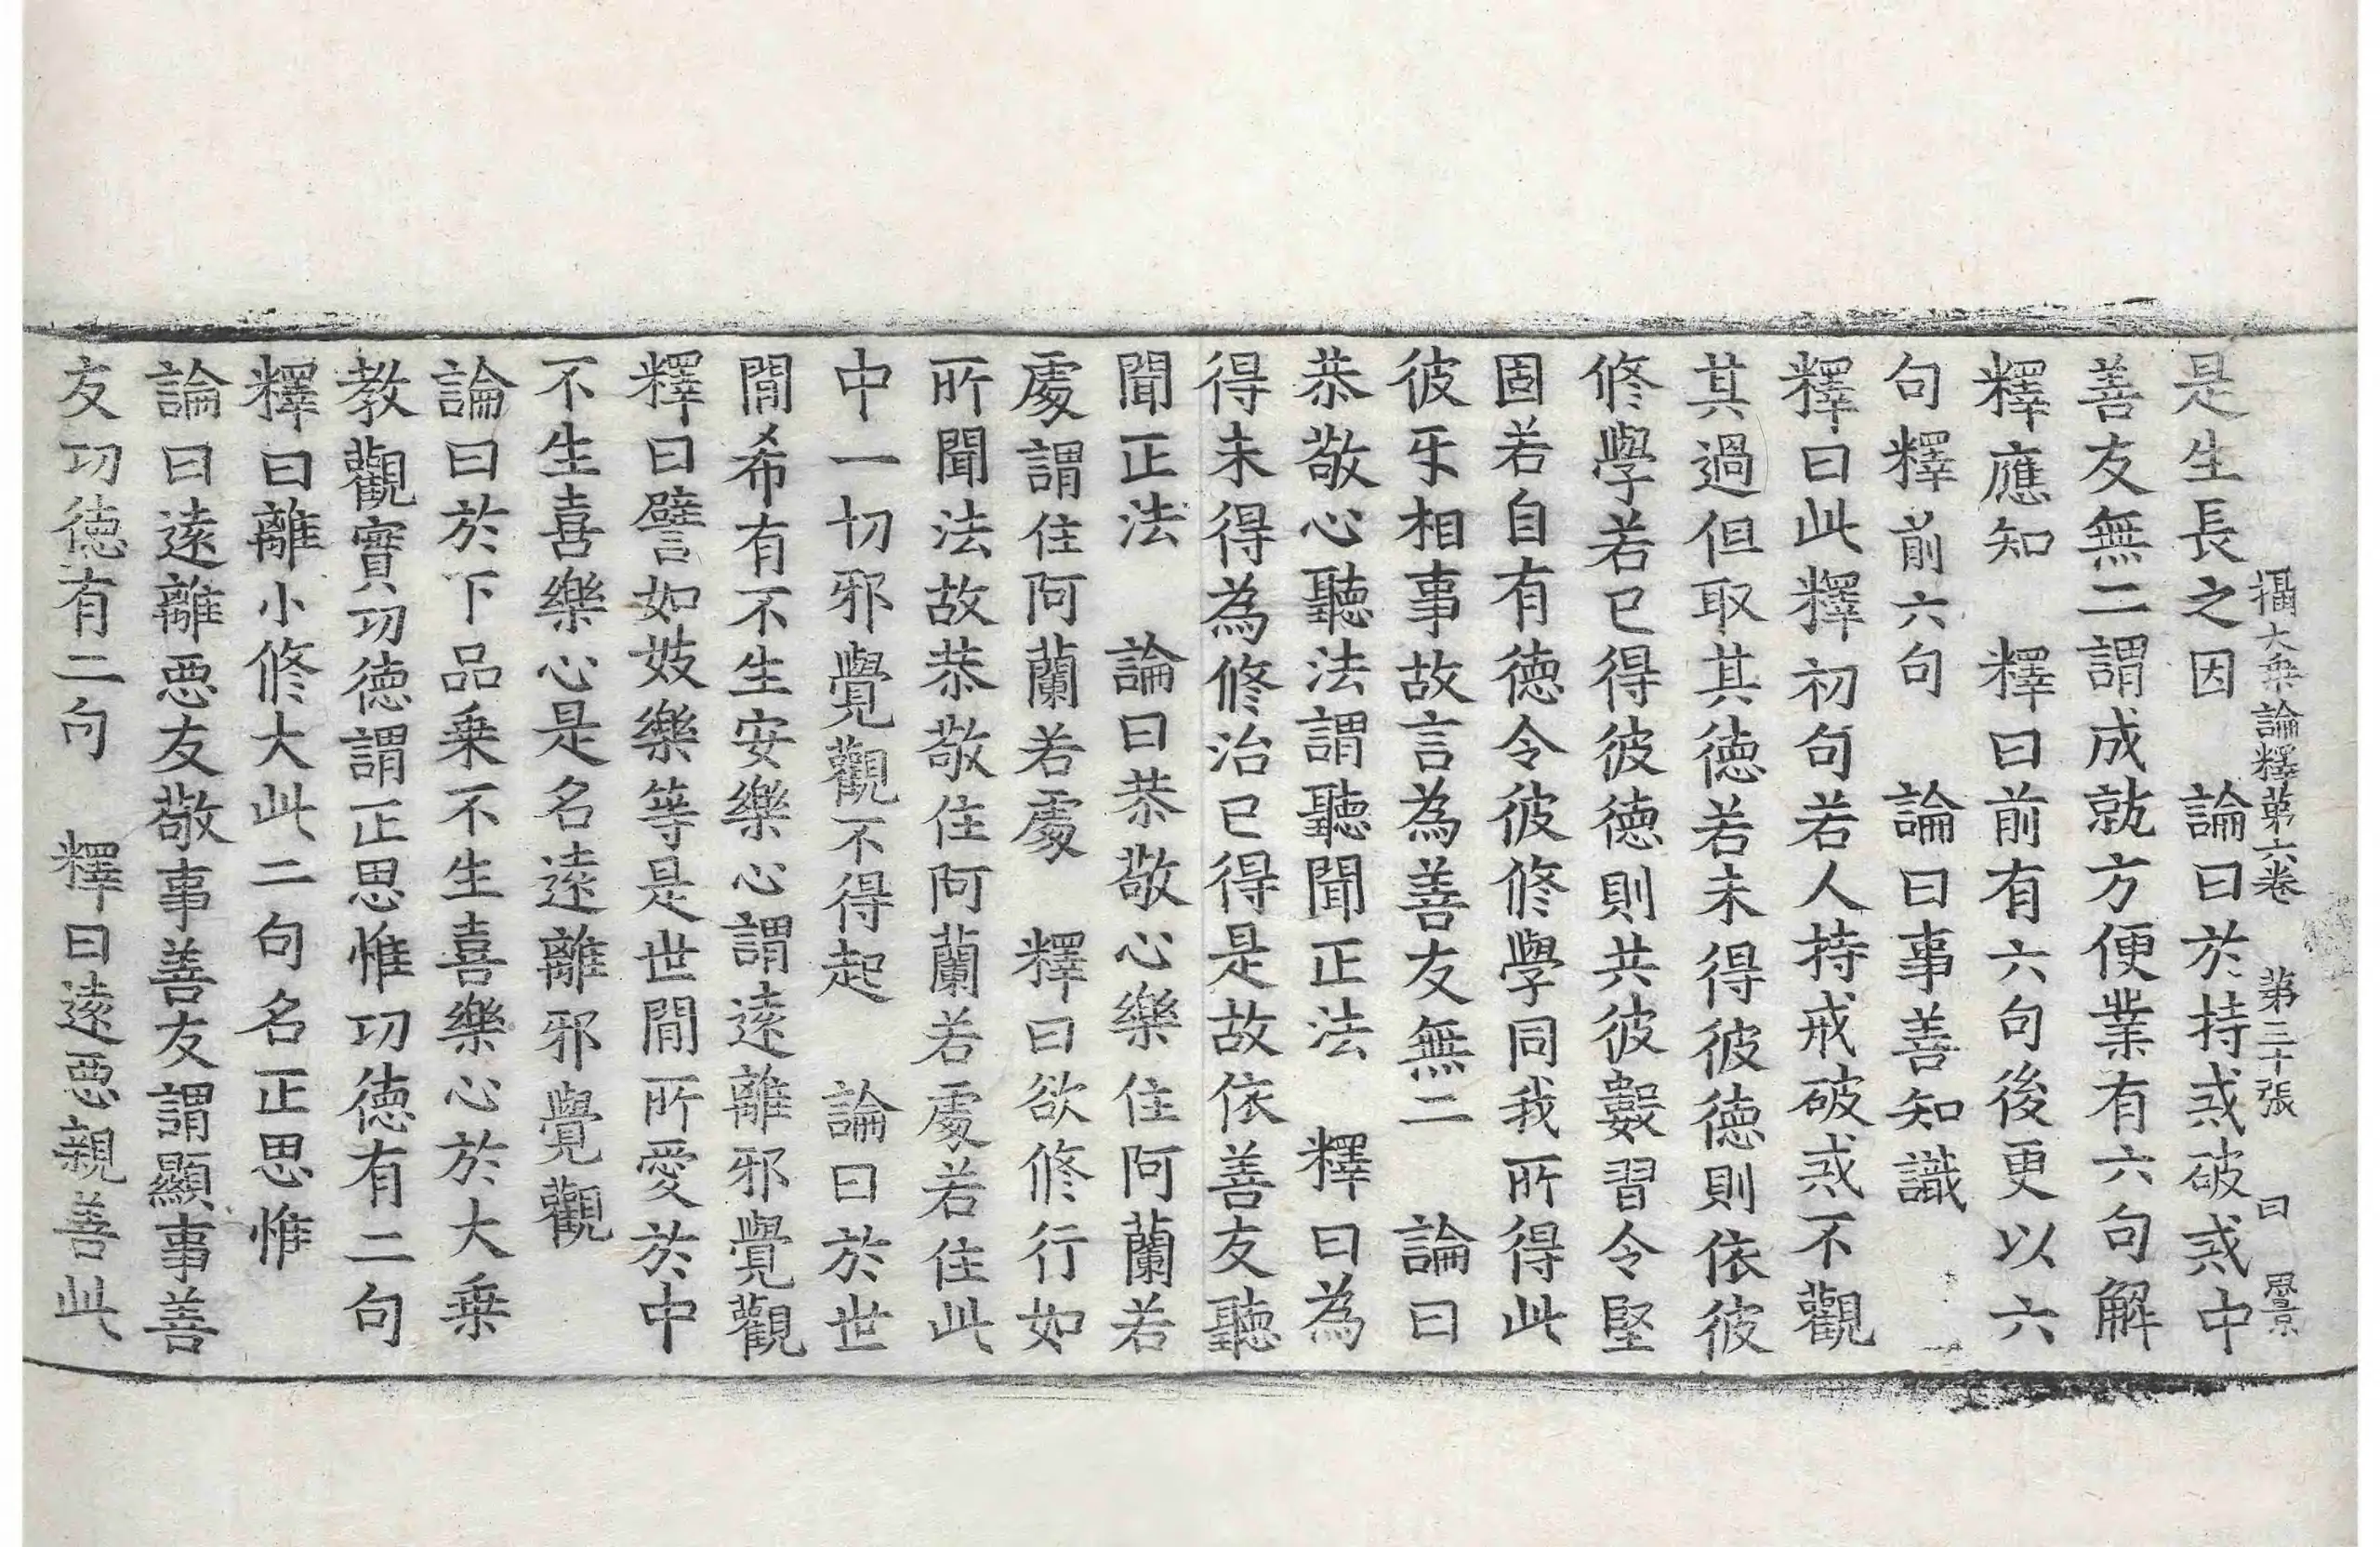 攝大乘論釋第六卷　第三十張　曰　景
是生長之因　論曰於持惑破惑中
善友無二謂成就方便業有六句解
釋應知　釋曰前有六句後更以六
句釋前六句　論曰事善知識
釋曰此釋初句若人持戒破惑不觀
其過但取其德若未得彼德則依彼
修學若已得彼德則共彼數習令堅
固若自有德令彼修學同我所得此
彼牙相事故言為善友無二　論曰
恭敬心聽法謂聽聞正法　釋曰為
得未得為修治已得是故依善友聽
聞正法　論曰恭敬心樂住阿蘭若
處謂住阿蘭若處　釋曰欲修行如
所聞法故恭敬住阿蘭若處若住此
中一切邪覺觀不得起　論曰於世
間希有不生安樂心謂遠離邪覺觀
釋曰譬如妓樂等是世間所愛於中
不生喜樂心是名遠離邪覺觀
論曰於下品乘不生喜樂心於大乘
教觀實功德謂正思惟功德有二句
釋曰離小修大此二句名正思惟
論曰遠離惡友敬事善友謂顯事善
友功德有二句　釋曰遠惡親善此